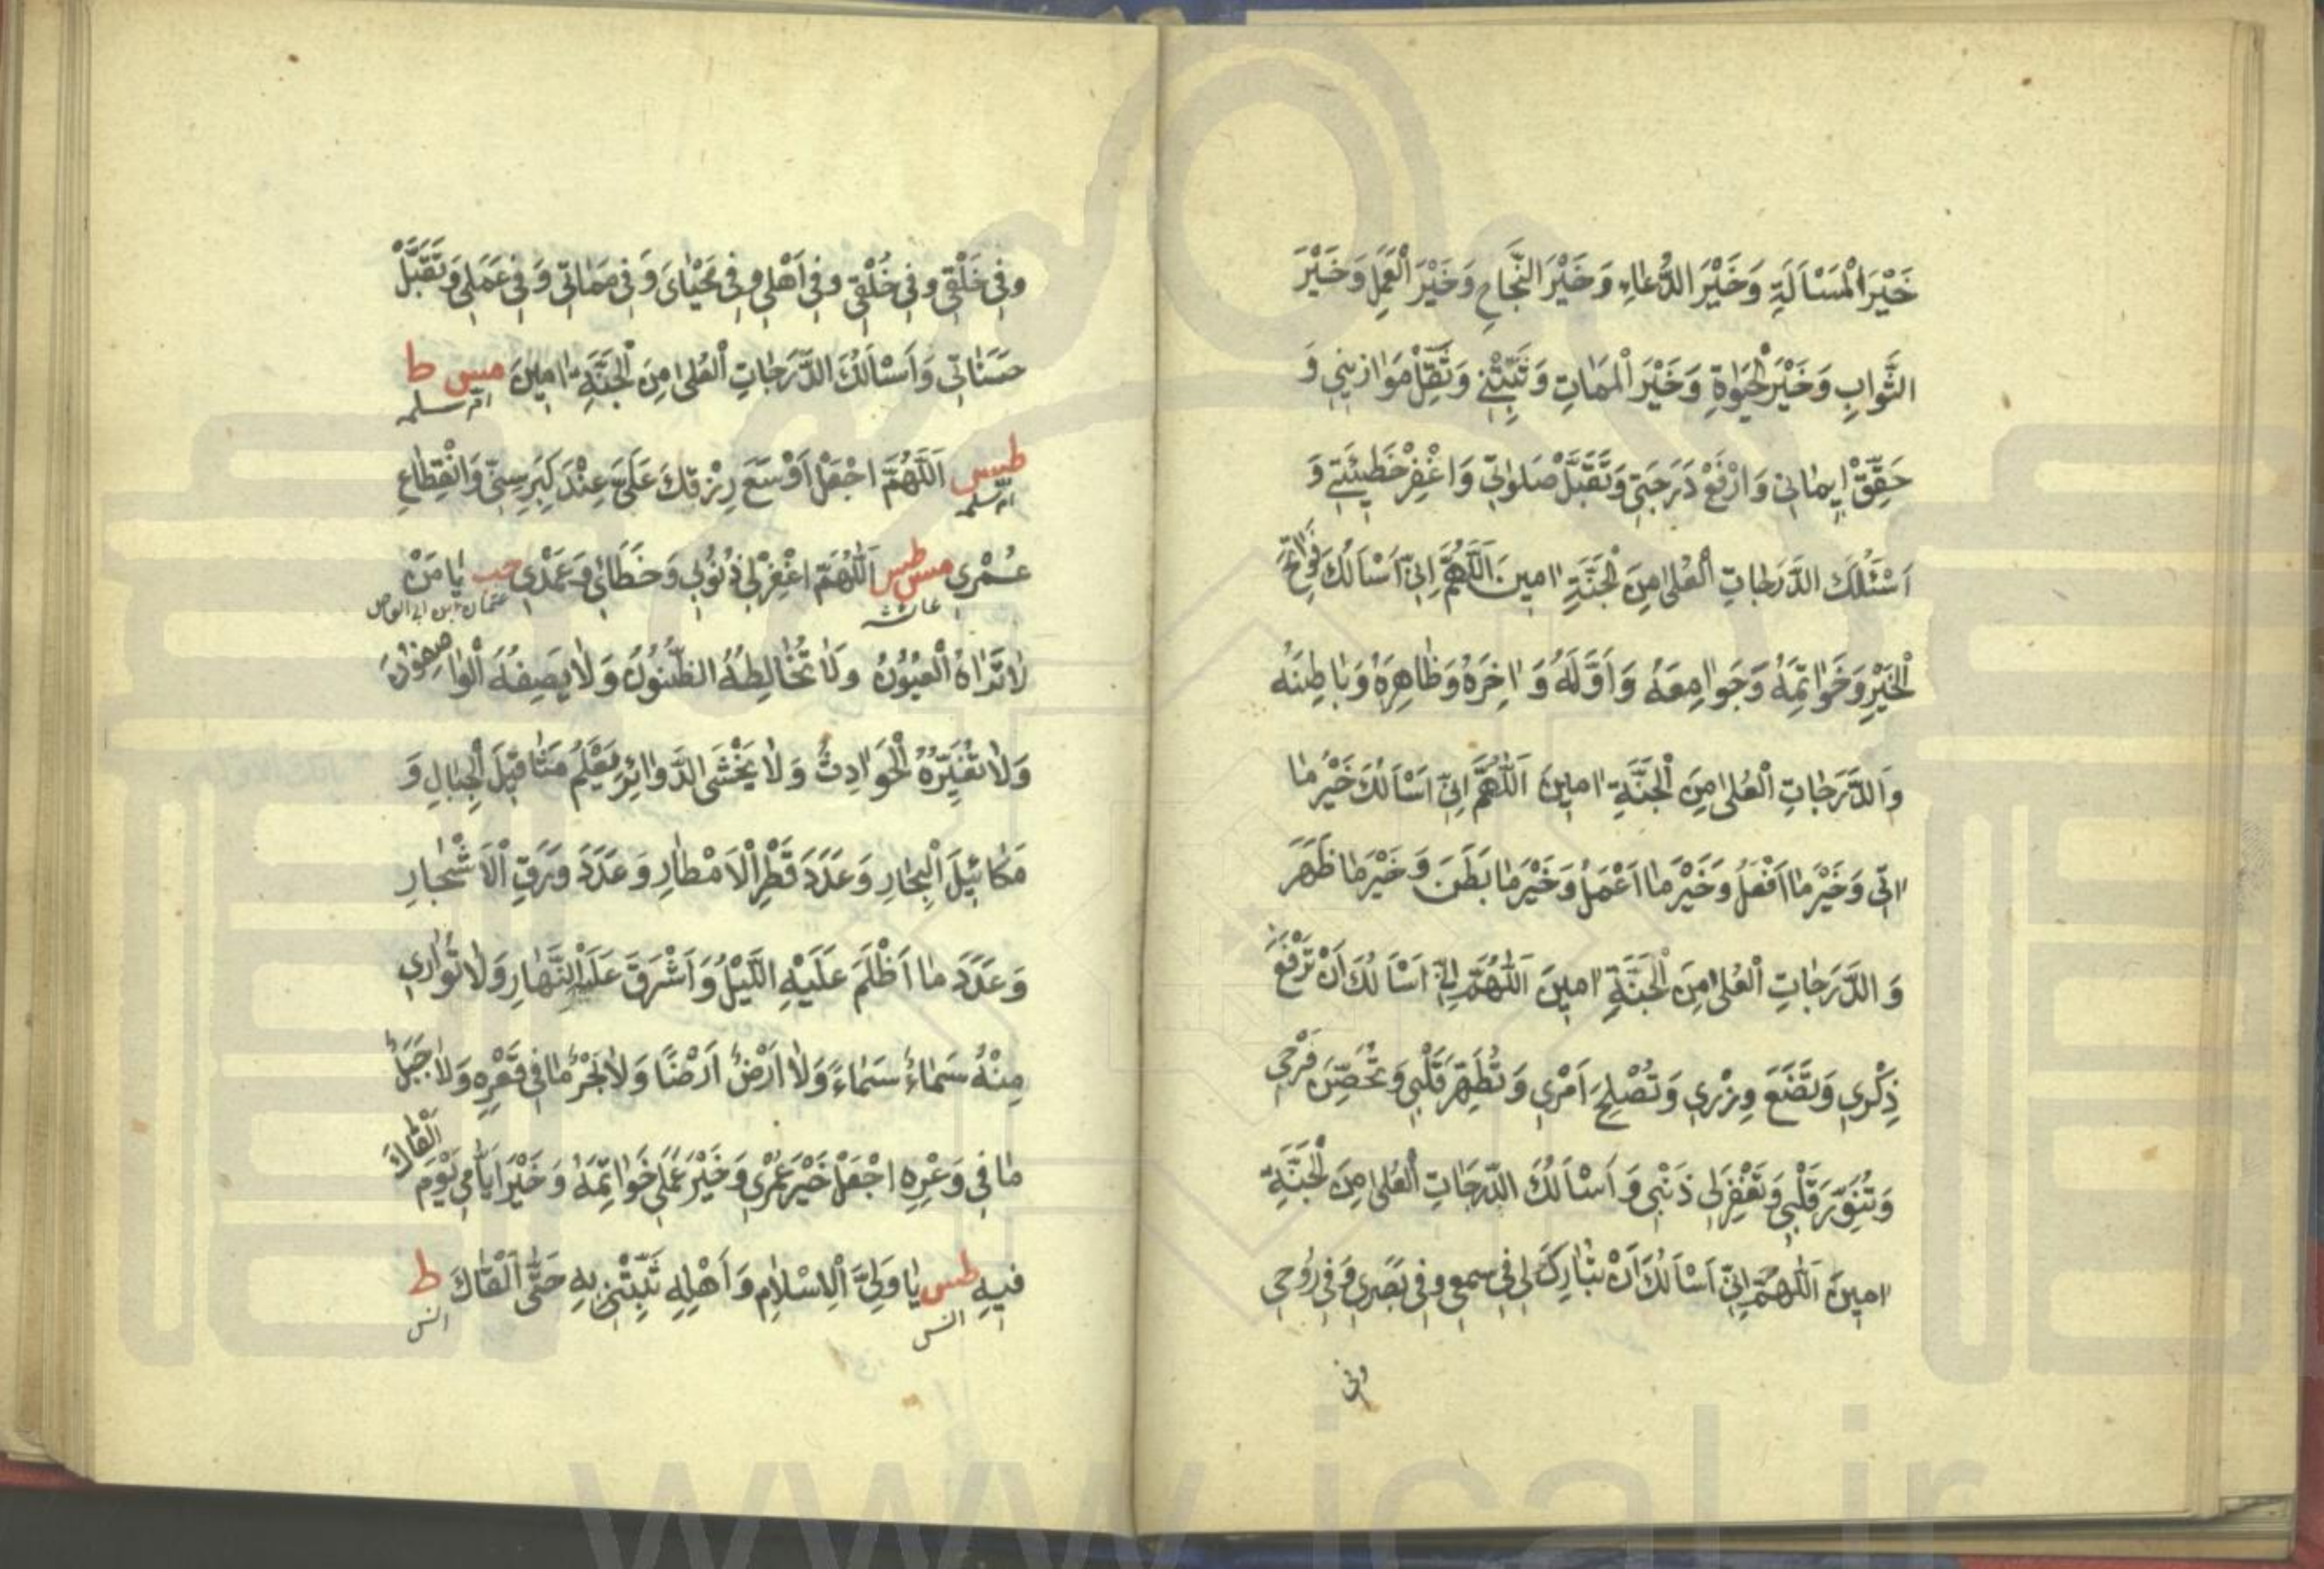 خَيْرَ الْمَسْاَلَةِ وَخَيْرَ الدُّعَاءِ وَخَيْرَ النَّجَاحِ وَخَيْرَ الْعَمَلِ وَخَيْرَ
الثَّوَابِ وَخَيْرَ الْحَيٰوةِ وَخَيْرَ الْمَمَاتِ وَثَبِّتْنِي وَثَقِّلْ مَوَازِينِي وَ
حَقِّقْ اِيمَانِي وَارْفَعْ دَرَجَتِي وَتَقَبَّلْ صَلوٰتِي وَاغْفِرْ خَطِيئَتِي وَ
اَسْئَلُكَ الدَّرَجَاتِ الْعُلىٰ مِنَ الْجَنَّةِ اٰمِينَ اَللّٰهُمَّ اِنِّي اَسْاَلُكَ فَوَاتِحَ
الْخَيْرِ وَخَوَاتِمَهُ وَجَوَامِعَهُ وَاَوَّلَهُ وَاٰخِرَهُ وَظَاهِرَهُ وَبَاطِنَهُ
وَالدَّرَجَاتِ الْعُلىٰ مِنَ الْجَنَّةِ اٰمِينَ اَللّٰهُمَّ اِنِّي اَسْاَلُكَ خَيْرَ مَا
اٰتِي وَخَيْرَ مَا اَفْعَلُ وَخَيْرَ مَا اَعْمَلُ وَخَيْرَ مَا بَطَنَ وَخَيْرَ مَا ظَهَرَ
وَالدَّرَجَاتِ الْعُلىٰ مِنَ الْجَنَّةِ اٰمِينَ اَللّٰهُمَّ اِنِّي اَسْاَلُكَ اَنْ تَرْفَعَ
ذِكْرِي وَتَضَعَ وِزْرِي وَتُصْلِحَ اَمْرِي وَتُطَهِّرَ قَلْبِي وَتُحَصِّنَ فَرْجِي
وَتُنَوِّرَ قَلْبِي وَتَغْفِرَ لِي ذَنْبِي وَاَسْاَلُكَ الدَّرَجَاتِ الْعُلىٰ مِنَ الْجَنَّةِ
اٰمِينَ اَللّٰهُمَّ اِنِّي اَسْاَلُكَ اَنْ تُبَارِكَ لِي فِي سَمْعِي وَفِي بَصَرِي وَفِي رُوحِي
وفى
وَفِي خَلْقِي وَفِي خُلُقِي وَفِي اَهْلِي وَفِي مَحْيَايَ وَفِي مَمَاتِي وَفِي عَمَلِي وَتَقَبَّلْ
حَسَنَاتِي وَاَسْاَلُكَ الدَّرَجَاتِ الْعُلىٰ مِنَ الْجَنَّةِ اٰمِينَ مس ط
ام سلمه
طس اَللّٰهُمَّ اجْعَلْ اَوْسَعَ رِزْقِكَ عَلَيَّ عِنْدَ كِبَرِ سِنِّي وَانْقِطَاعِ
عُمْرِي مس طس اَللّٰهُمَّ اغْفِرْ لِي ذُنُوبِي وَخَطَائِي وَعَمْدِي حب يَا مَنْ
عائشه عثمان ابن ابى العاص
لَا تَرَاهُ الْعُيُونُ وَلَا تُخَالِطُهُ الظُّنُونُ وَلَا يَصِفُهُ الْوَاصِفُونَ
وَلَا تُغَيِّرُهُ الْحَوَادِثُ وَلَا يَخْشَى الدَّوَائِرَ يَعْلَمُ مَثَاقِيلَ الْجِبَالِ وَ
مَكَائِيلَ الْبِحَارِ وَعَدَدَ قَطْرِ الْاَمْطَارِ وَعَدَدَ وَرَقِ الْاَشْجَارِ
وَعَدَدَ مَا اَظْلَمَ عَلَيْهِ اللَّيْلُ وَاَشْرَقَ عَلَيْهِ النَّهَارِ وَلَا تُوَارِي
مِنْهُ سَمَاءٌ سَمَاءً وَلَا اَرْضٌ اَرْضًا وَلَا بَحْرٌ مَا فِي قَعْرِهِ وَلَا جَبَلٌ
مَا فِي وَعْرِهِ اجْعَلْ خَيْرَ عُمْرِي وَخَيْرَ عَمَلِي خَوَاتِمَهُ وَخَيْرَ اَيَّامِي يَوْمَ اَلْقَاكَ
فِيهِ طس يَا وَلِيَّ الْاِسْلَامِ وَاَهْلِهِ ثَبِّتْنِي بِهِ حَتّٰى اَلْقَاكَ ط
انس انس
www.ical.ir